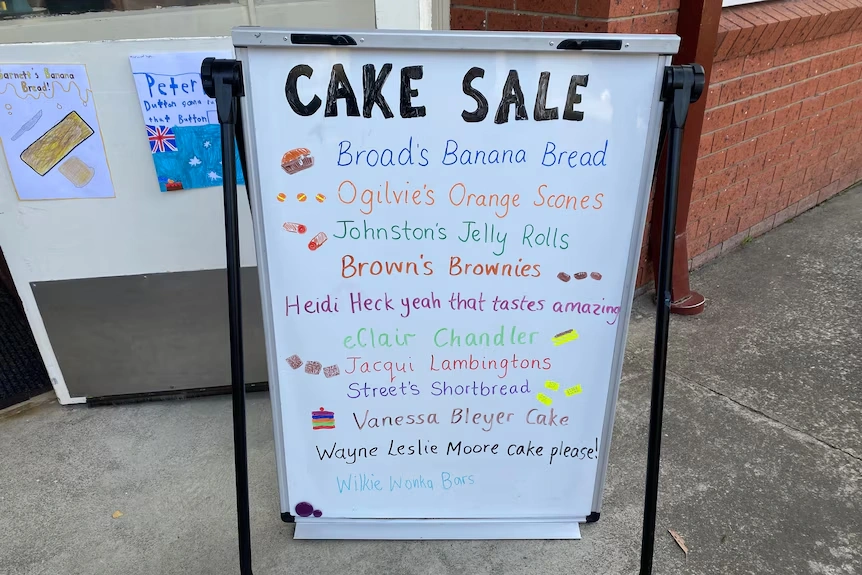 CAKE SALE
Broad's Banana Bread
Ogilvie's Orange Scones
Johnston's Jelly Rolls
Brown's Brownies
Heidi Heck yeah that tastes amazing
eClair Chandler
Jacqui Lambingtons
Street's Shortbread
Vanessa Bleyer Cake
Wayne Leslie Moore cake please!
Wilkie Wonka Bars
Garnett's Banana
Bread!
Peter
Dutton
that Button